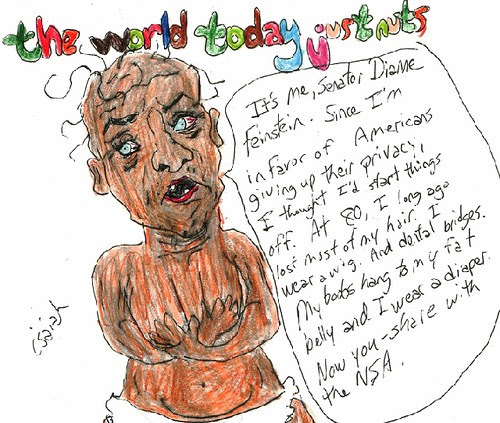 the world today just nuts
It's me, Senator Dianne
Feinstein. Since I'm
in favor of Americans
giving up their privacy,
I thought I'd start things
off. At 80, I long ago
lost most of my hair. I
wear a wig. And dental bridges.
My boobs hang to my fat
belly and I wear a diaper.
Now you-share with
the NSA.
isaiah